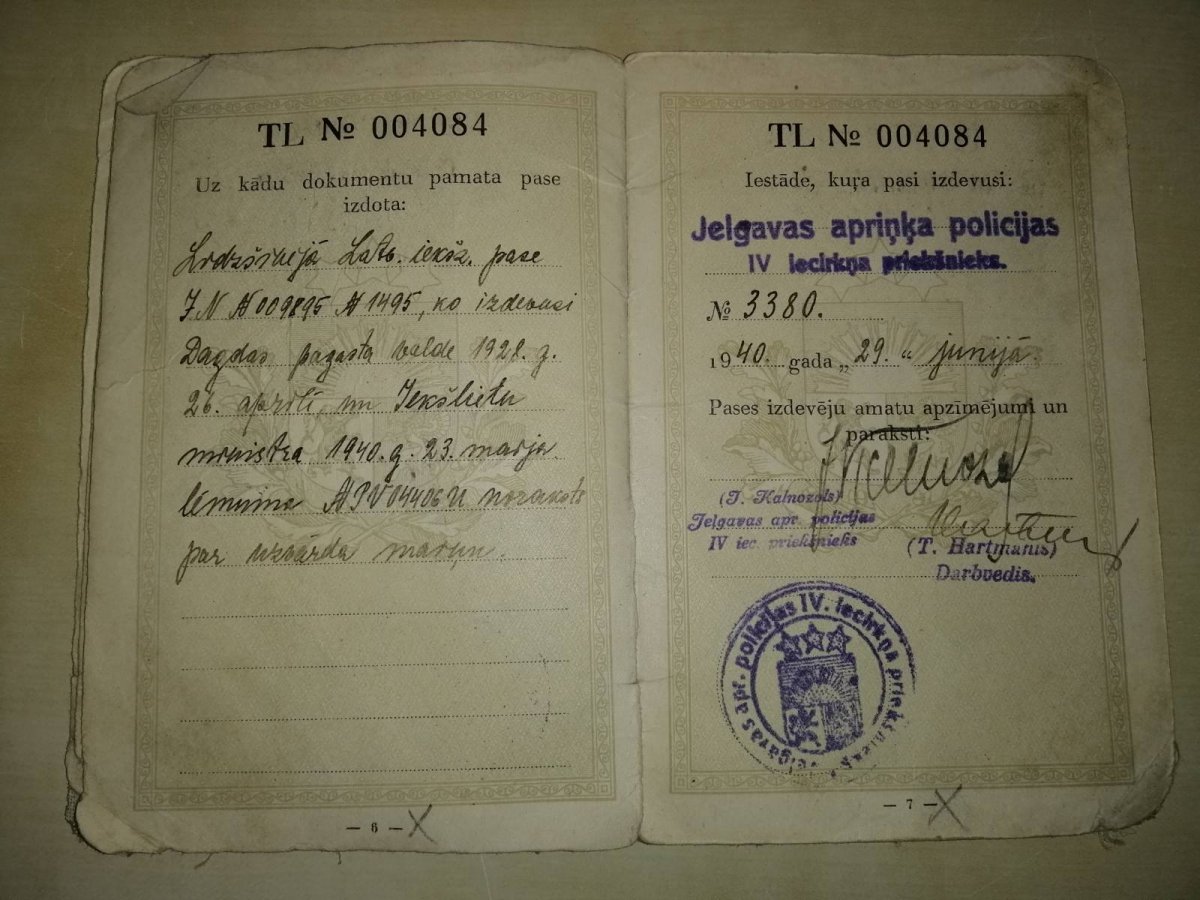 TL № 004084
Uz kādu dokumentu pamata pase
izdota:
Līdzšinējā Latv. iekšz. pase
JN № 009895 № 1495, ko izdevusi
Dagdas pagasta valde 1928. g.
26. aprīlī, un Iekšlietu
ministra 1940. g. 23. marta
lēmuma
par uzvārda maiņu.
— 6 — X
TL № 004084
Iestāde, kuŗa pasi izdevusi:
Jelgavas apriņķa policijas
IV iecirkņa priekšnieks.
№ 3380.
1940. gada „29.“ junijā.
Pases izdevēju amatu apzīmējumi un
paraksti:
(J. Kalnozols)
Jelgavas apr. policijas
IV iec. priekšnieks
(T. Hartmanis)
Darbvedis.
Jelgavas apr. policijas IV. iecirkņa priekšnieks
— 7 — X